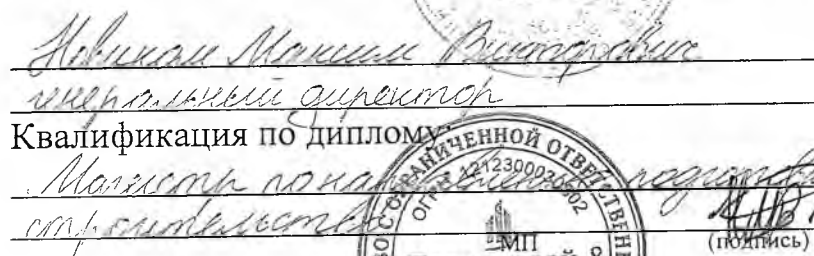 Новиков Максим Викторович
генеральный директор
Квалификация по диплому:
Магистр по направлению подготовки
строительство
С ОГРАНИЧЕННОЙ ОТВЕТСТВЕН
ОГРН
МП
(подпись)